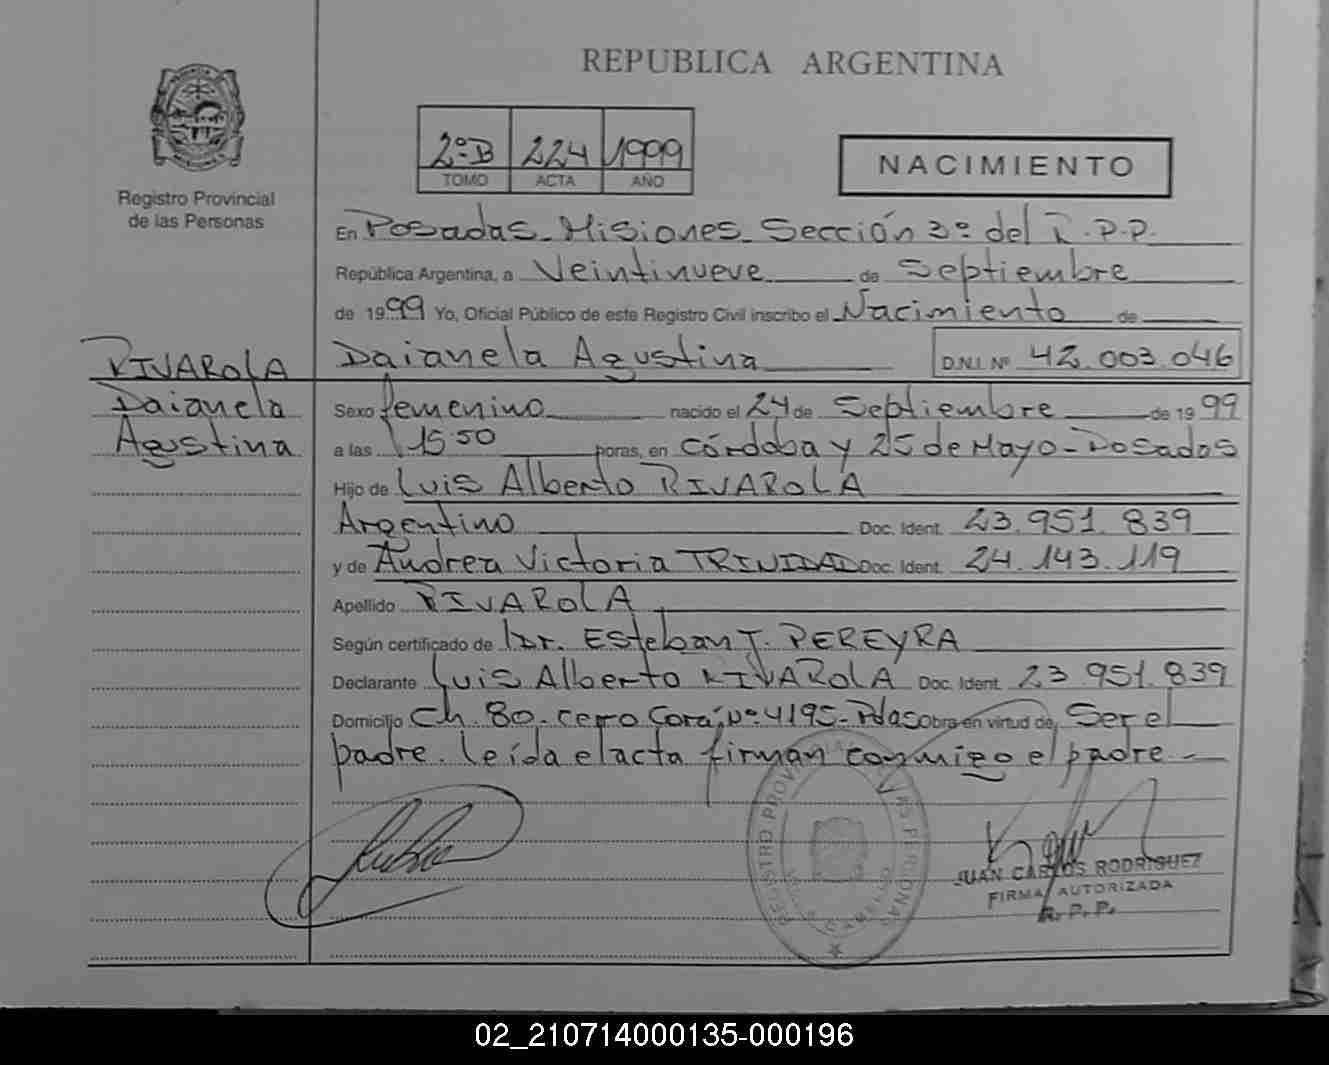 REPUBLICA ARGENTINA
2º B 224 1999
TOMO ACTA AÑO
NACIMIENTO
Registro Provincial
de las Personas
En Posadas - Misiones - Sección 3º del R.P.P.
República Argentina, a Veintinueve de Septiembre
de 1999 Yo, Oficial Público de este Registro Civil inscribo el Nacimiento de
RIVAROLA
Daianela Agustina D.N.I. Nº 42.003.046
Daianela
Agustina
Sexo femenino nacido el 24 de Septiembre de 1999
a las 15 50 horas, en Córdoba y 25 de Mayo - Posadas
Hijo de Luis Alberto RIVAROLA
Argentino Doc. Ident. 23.951.839
y de Andrea Victoria TRINIDAD Doc. Ident. 24.143.119
Apellido RIVAROLA
Según certificado de Dr. Esteban J. PEREYRA
Declarante Luis Alberto RIVAROLA Doc. Ident. 23 951.839
Domicilio Ch. 80 - Cerro Corá Nº 4195 - Pdas Obra en virtud de Ser el
padre. Leída el acta firman conmigo el padre.
REGISTRO PROVINCIAL DE LAS PERSONAS
JUAN CARLOS RODRIGUEZ
FIRMA AUTORIZADA
R. P. P.
02_210714000135-000196